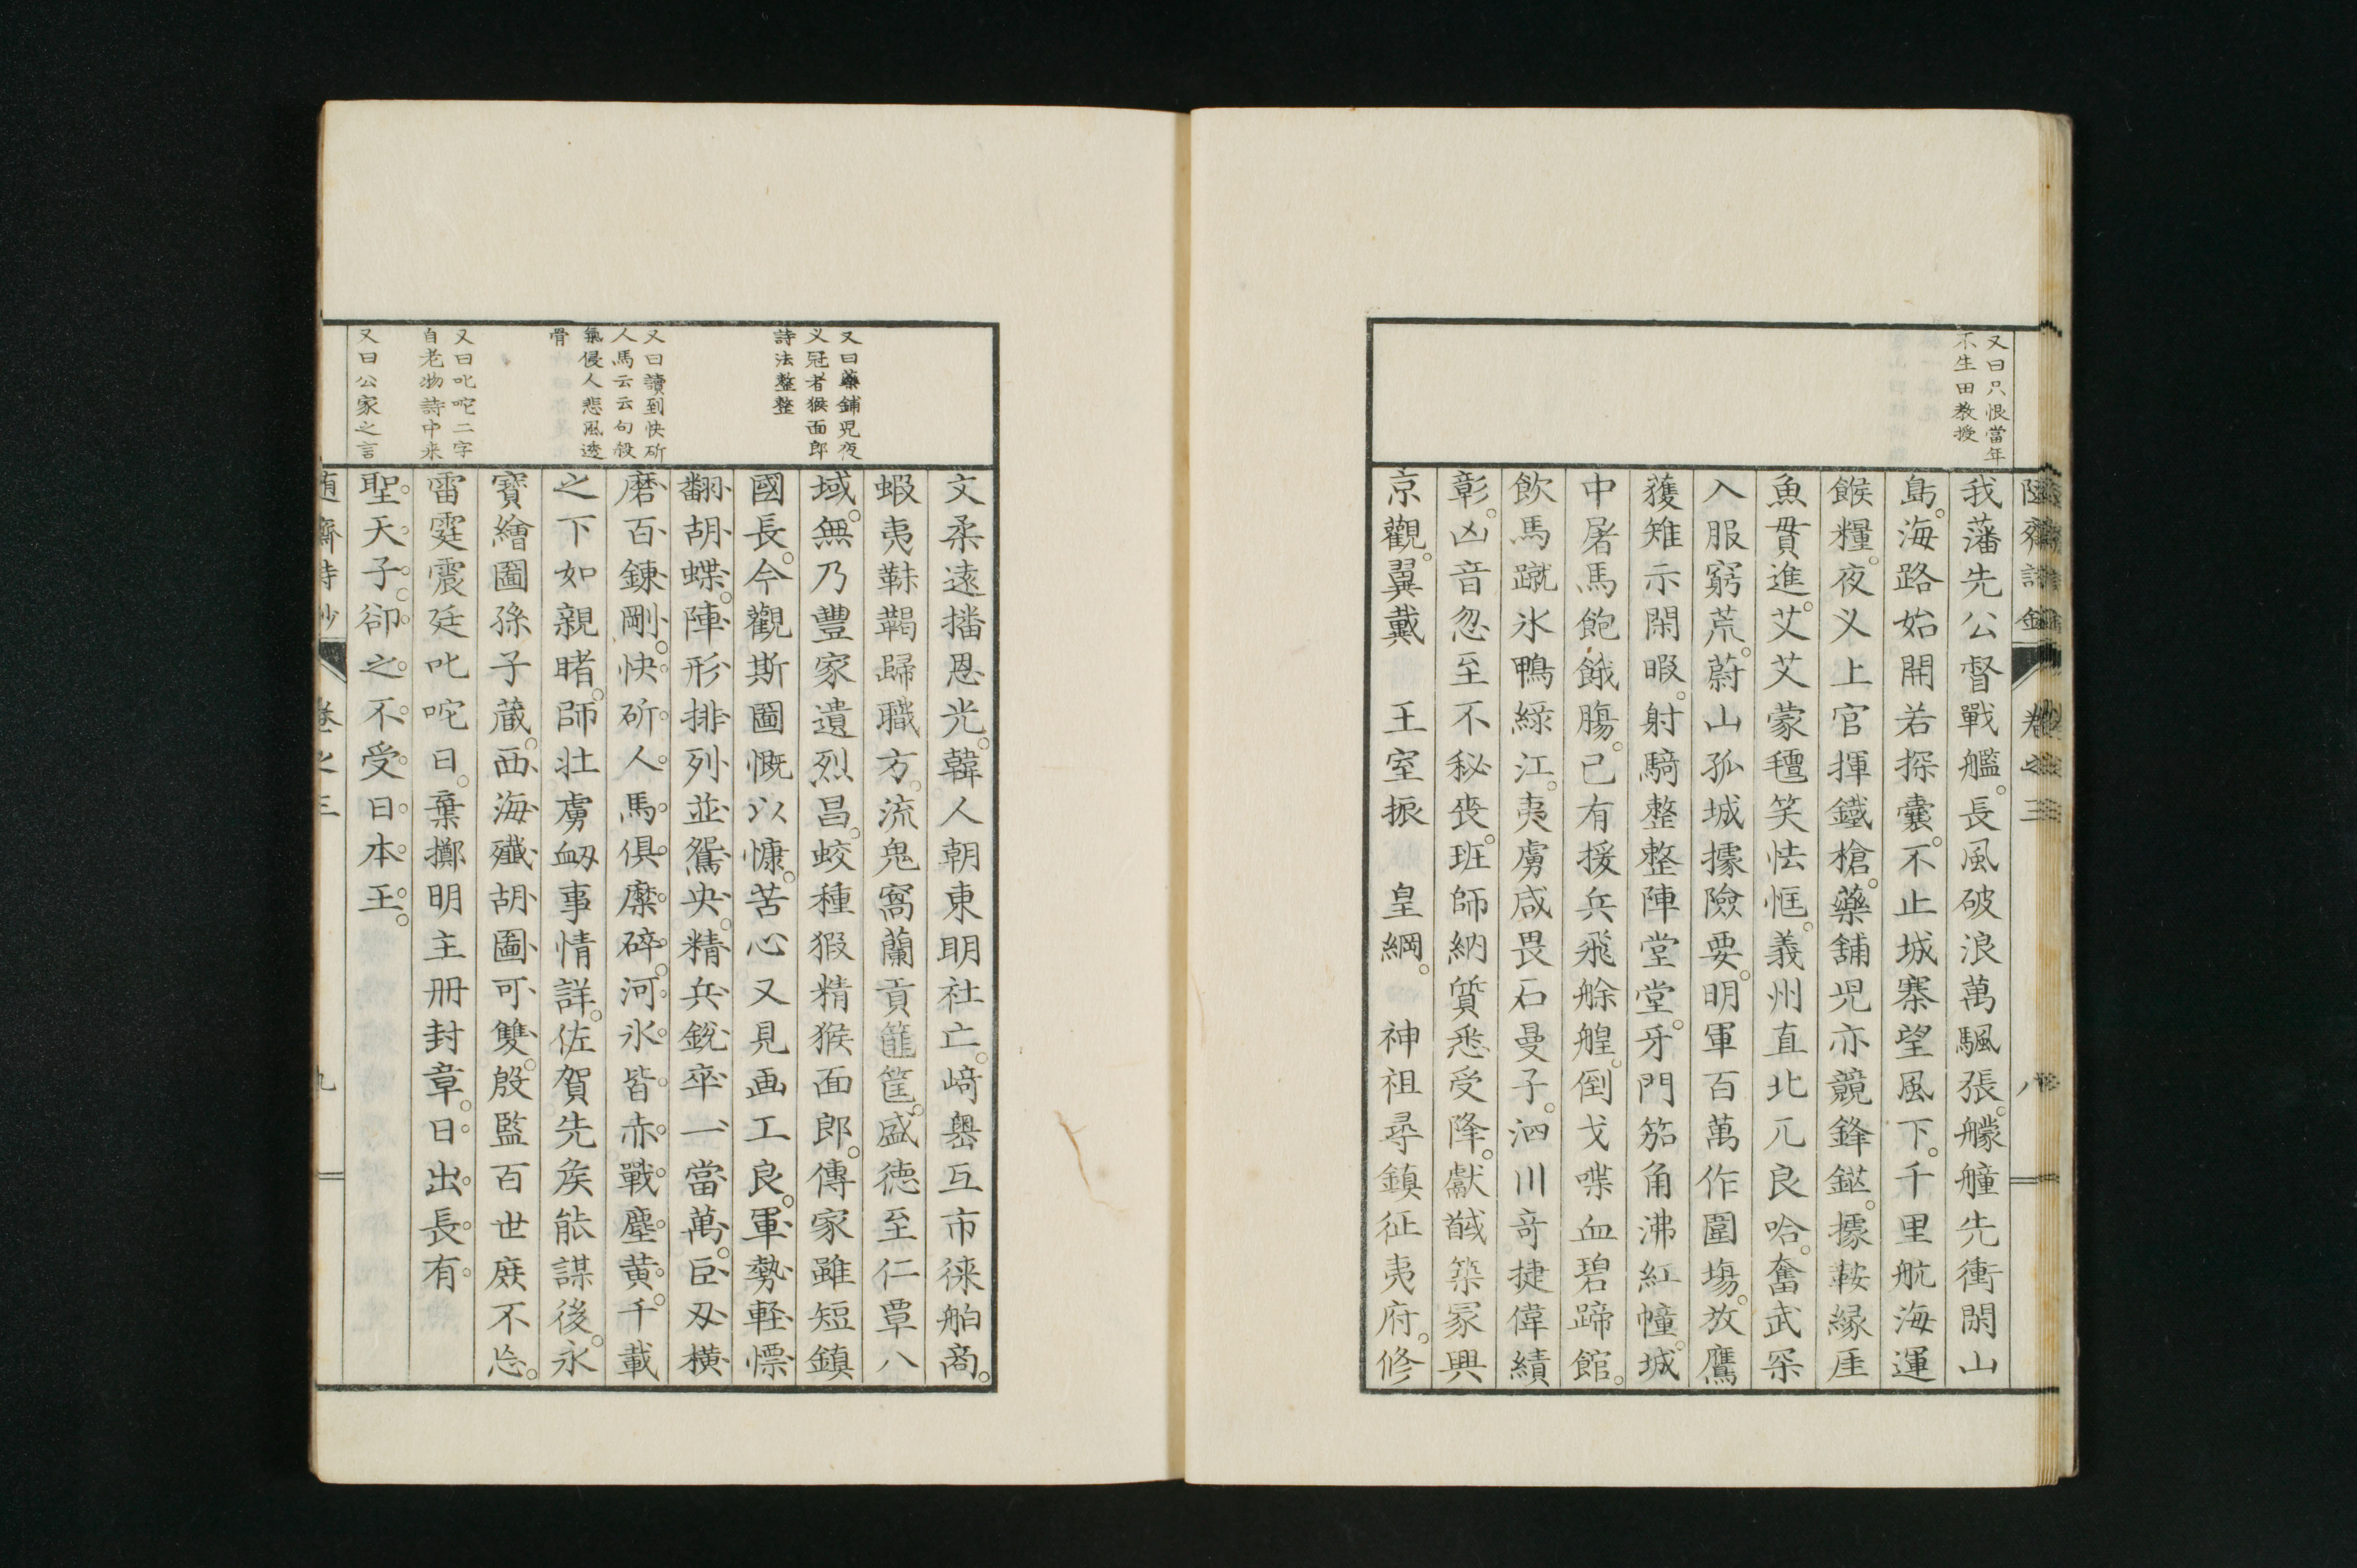 又曰只恨當年
不生田教授
我藩先公督戰艦。長風破浪萬颿張。艨艟先衝閑山
島。海路始開若探囊。不止城寨望風下。千里航海運
餱糧。夜叉上官揮鐵槍。藥舖児亦競鋒鋩。據鞍縁厓
魚貫進。艾艾蒙氊笑怯恇。義州直北兀良哈。奮武罙
入服窮荒。蔚山孤城據險要。明軍百萬作圍場。放鷹
獲雉示閑暇。射騎整整陣堂堂。牙門笳角沸紅幢。城
中屠馬飽餓膓。已有援兵飛艅艎。倒戈喋血碧蹄館。
飲馬蹴氷鴨緑江。夷虜咸畏石曼子。泗川竒捷偉績
彰。凶音忽至不秘喪。班師納質悉受降。獻馘築冢興
京觀。翼戴 王室振 皇綱。 神祖尋鎮征夷府。修
隨齋詩鈔 卷之三 八
又曰藥舖児夜
叉冠者猴面郎
詩法整整
又曰讀到快斫
人馬云云句殺
氣侵人悲風透
骨
又曰叱咤二字
自老物詩中来
又曰公家之言
文柔遠播恩光。韓人朝東明社亡。﨑嶴互市徠舶商。
蝦夷靺鞨歸職方。流鬼窩蘭貢篚筐。盛徳至仁覃八
域。無乃豐家遺烈昌。蛟種猳精猴面郎。傳家雖短鎮
國長。今觀斯圖慨以慷。苦心又見画工良。軍勢軽慓
翻胡蝶。陣形排列並鴛央。精兵鋭卒一當萬。巨刄横
磨百錬剛。快斫人馬俱糜碎。河氷皆赤戰塵黄。千載
之下如親睹。師壮虜衂事情詳。佐賀先矦能謀後。永
寶繪圖孫子蔵。西海殲胡圖可雙。殷監百世庶不忘。
雷霆震廷叱咤曰。棄擲明主冊封章。日出長有
聖天子。卻之不受日本王。
随齋詩抄 卷之三 九